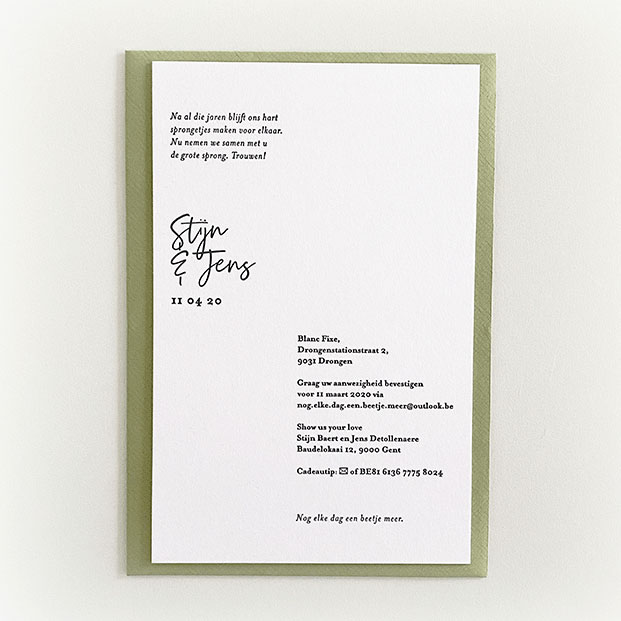 Na al die jaren blijft ons hart
sprongetjes maken voor elkaar.
Nu nemen we samen met u
de grote sprong. Trouwen!
Stijn
& Jens
11 04 20
Blanc Fixe,
Drongenstationstraat 2,
9031 Drongen
Graag uw aanwezigheid bevestigen
voor 11 maart 2020 via
nog.elke.dag.een.beetje.meer@outlook.be
Show us your love
Stijn Baert en Jens Detollenaere
Baudelokaai 12, 9000 Gent
Cadeautip: ✉ of BE81 6136 7775 8024
Nog elke dag een beetje meer.